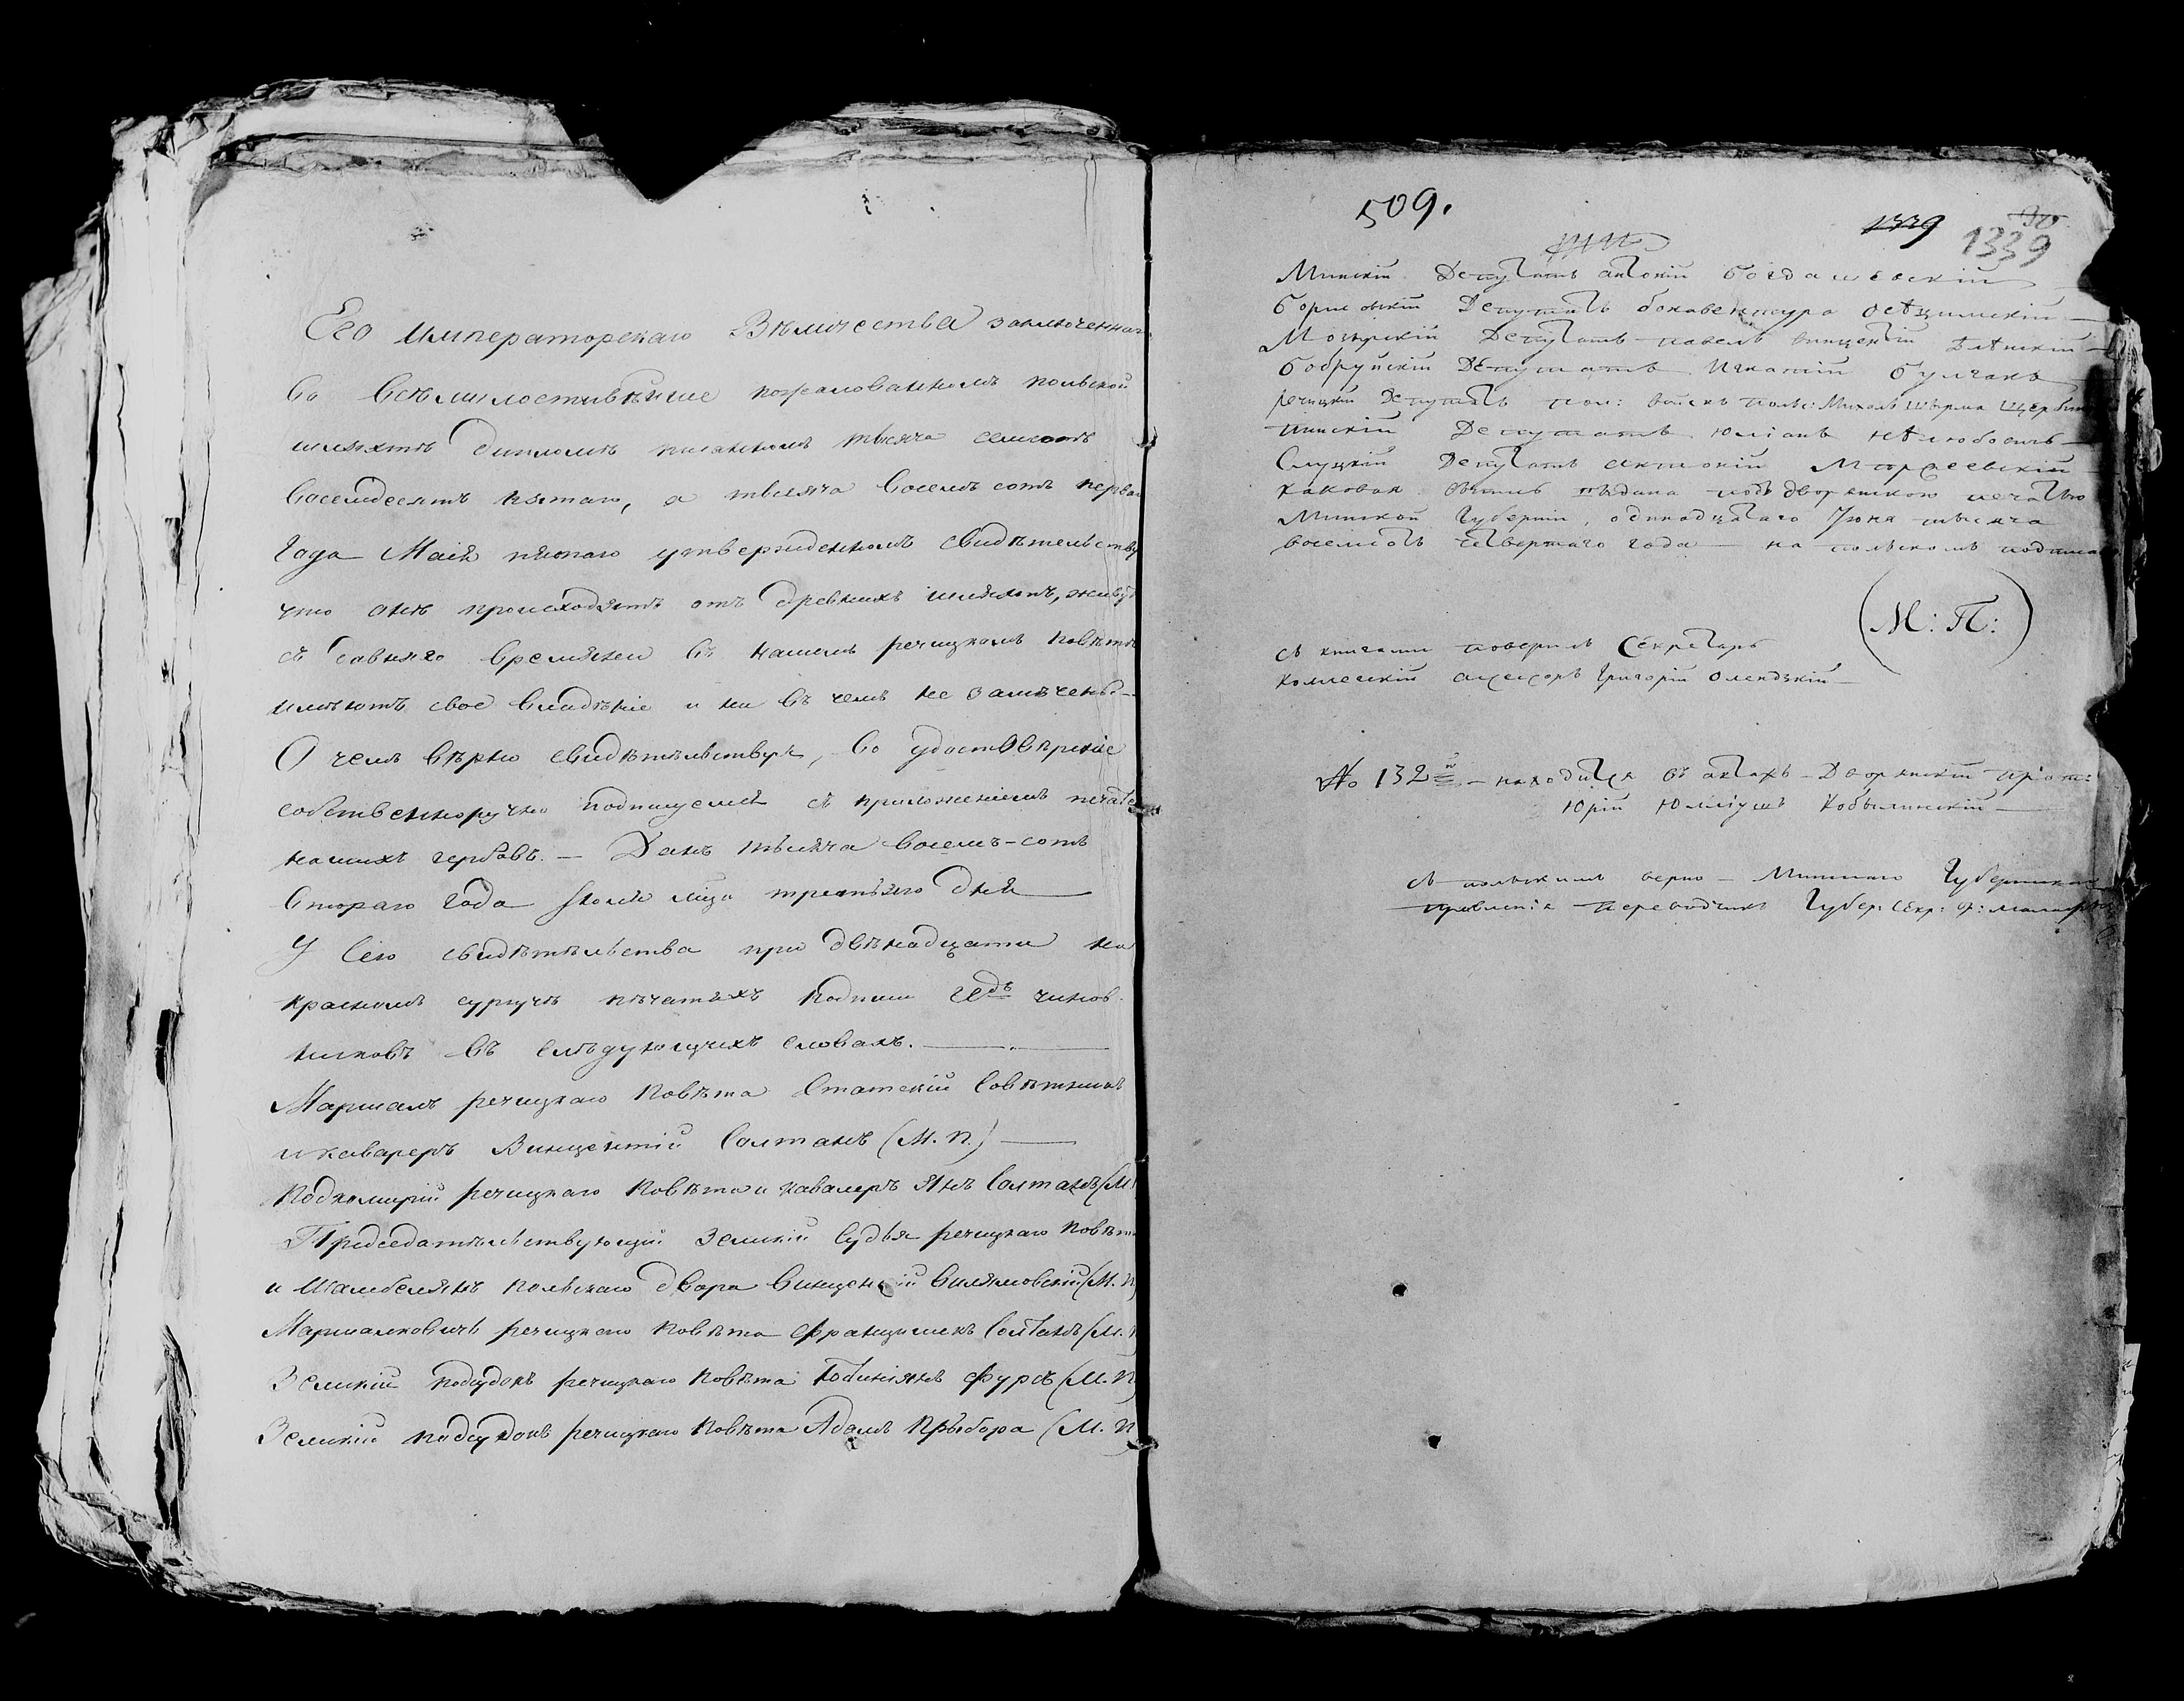 Его Императорскаго Вѣличества заключеннаго
во Всѣмилостивѣише пожалованномъ польской
шляхтѣ дипломѣ писанномъ тысяча семьсотъ
восемдесятъ пятаго, а тысяча восемъ сотъ перваго
Года Маія пятаго утвержденномъ свидѣтельству
что онѣ происходятъ отъ древнихъ шляхтъ, живутъ
съ давняго времяни въ нашемъ речицкомъ повѣтѣ
имѣютъ свое владѣніе и ни въ чемъ не замѣчены —
О чемъ вѣрно свидѣтѣльствуя, во удостовѣреніе
собственноручно подпишемся съ приложеніемъ печатей
нашихъ гербовъ. — Данъ тысяча восемъ-сотъ
втораго года Іюля мца третьяго дня
У сего свидѣтѣльства при двѣнадцати на
красномъ сургучѣ пѣчатяхъ подписи чинов-
никовъ въ слѣдующихъ словахъ. —
Маршалъ речицкаго повѣта Статскій совѣтникъ
и каварелъ Винцентій Солтанъ (М. П.) —
Подкоморій речицкаго повѣта и кавалеръ Янъ Солтанъ (М.
Предсѣдатѣльствующій Земскій Судья речицкаго повѣта
и Шамбелянъ польскаго двора Винцентій (М. П
Маршалковичъ речицкаго повѣта Францишекъ Солтанъ (М. П
Земскій подсудокъ речицкаго повѣта Фурсъ (М. П
Земскій подсудокъ речицкаго повѣта Адамъ Прыбора (М. П
509.
1339
1339
Минскій Депутатъ антоній богдашевскій —
борисовскій Депутатъ бонавентура осѣцимскій —
Мозырскій Депутатъ павелъ винцентій Елѣнскій —
бобруйскій Депутатъ Игнатій булгакъ —
речицкій Депутатъ пол: войскъ польс: Михалъ Щерба
пинскій Депутатъ юліанъ нѣлюбовичъ —
Слуцкій Депутатъ антоній Мпржеевскій —
каковая выдана подъ дворянскою печатью
Минской Губерніи, одинадцатаго Іюня тысяча
восемсотъ четвертаго года — на польскомъ подписа
(М: П:)
съ книгами поверилъ Секретарь
коллескій асесоръ Григорій олендзкій —
№ 132й — находится въ актахъ — Дворянскій
Юрій Юлліушъ Кобылинскій —
съ польскимъ верно — Минскаго Губернскаго
правленія переводчикъ Губер: Секр: Ф: